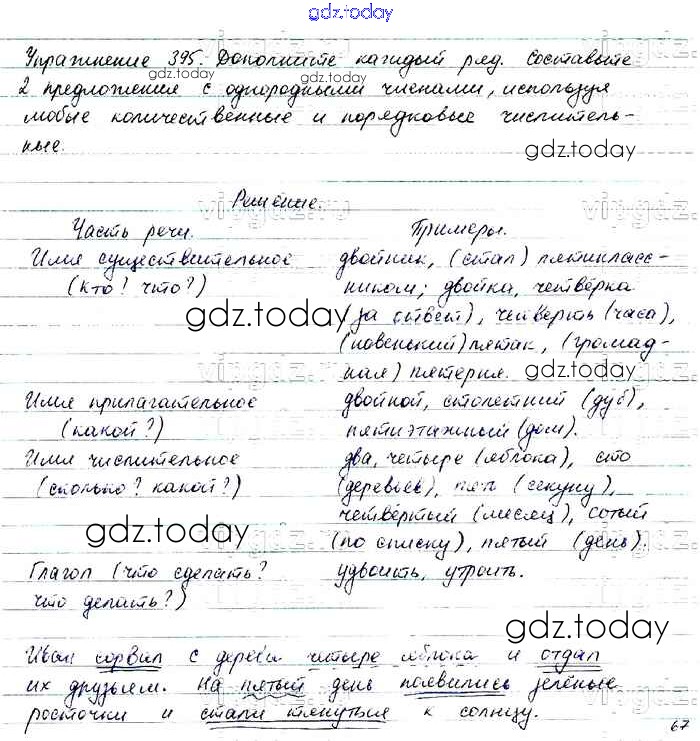 gdz.today
Упражнение 395. Дополните каждый ряд. Составьте
gdz.today gdz.today
2 предложения с однородными членами, используя
любые количественные и порядковые числитель-
ные.
gdz.today
Решение.
Часть речи. Примеры.
Имя существительное двойник, (стал) пятикласс-
(кто? что?) ником; двойка, четвёрка
gdz.today (за ответ), четверть (часа),
(новенький) пятак, (громад-
ная) пятерня. gdz.today
Имя прилагательное двойной, столетний (дуб),
(какой?) пятиэтажный (дом).
Имя числительное два, четыре (яблока), сто
(сколько? какой?) (деревьев), пять (секунд),
четвёртый (месяц), сотый
gdz.today (по списку), пятый (день).
Глагол (что сделать? удвоить, утроить.
что делать?)
gdz.today
Иван сорвал с дерева четыре яблока и отдал
их друзьям. На пятый день появились зелёные
росточки и стали тянуться к солнцу.
67